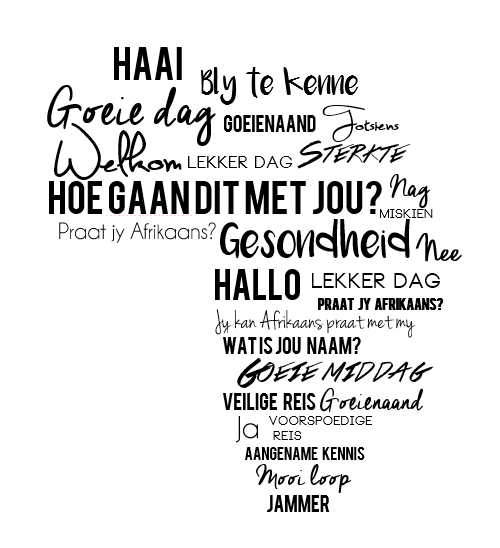 HAAI
Bly te kenne
Goeie dag
GOEIENAAND
Totsiens
Welkom
LEKKER DAG
STERKTE
HOE GAAN DIT MET JOU?
Nag
MISKIEN
Praat jy Afrikaans?
Gesondheid
Nee
HALLO
LEKKER DAG
PRAAT JY AFRIKAANS?
Jy kan Afrikaans praat met my
WAT IS JOU NAAM?
GOEIE MIDDAG
VEILIGE REIS
Goeienaand
Ja
VOORSPOEDIGE
REIS
AANGENAME KENNIS
Mooi loop
JAMMER